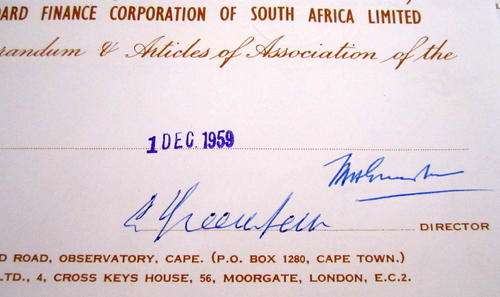 ARD FINANCE CORPORATION OF SOUTH AFRICA LIMITED
randum & Articles of Association of the
1 DEC 1959
DIRECTOR
D ROAD, OBSERVATORY, CAPE. (P.O. BOX 1280, CAPE TOWN.)
LTD., 4, CROSS KEYS HOUSE, 56, MOORGATE, LONDON, E.C.2.